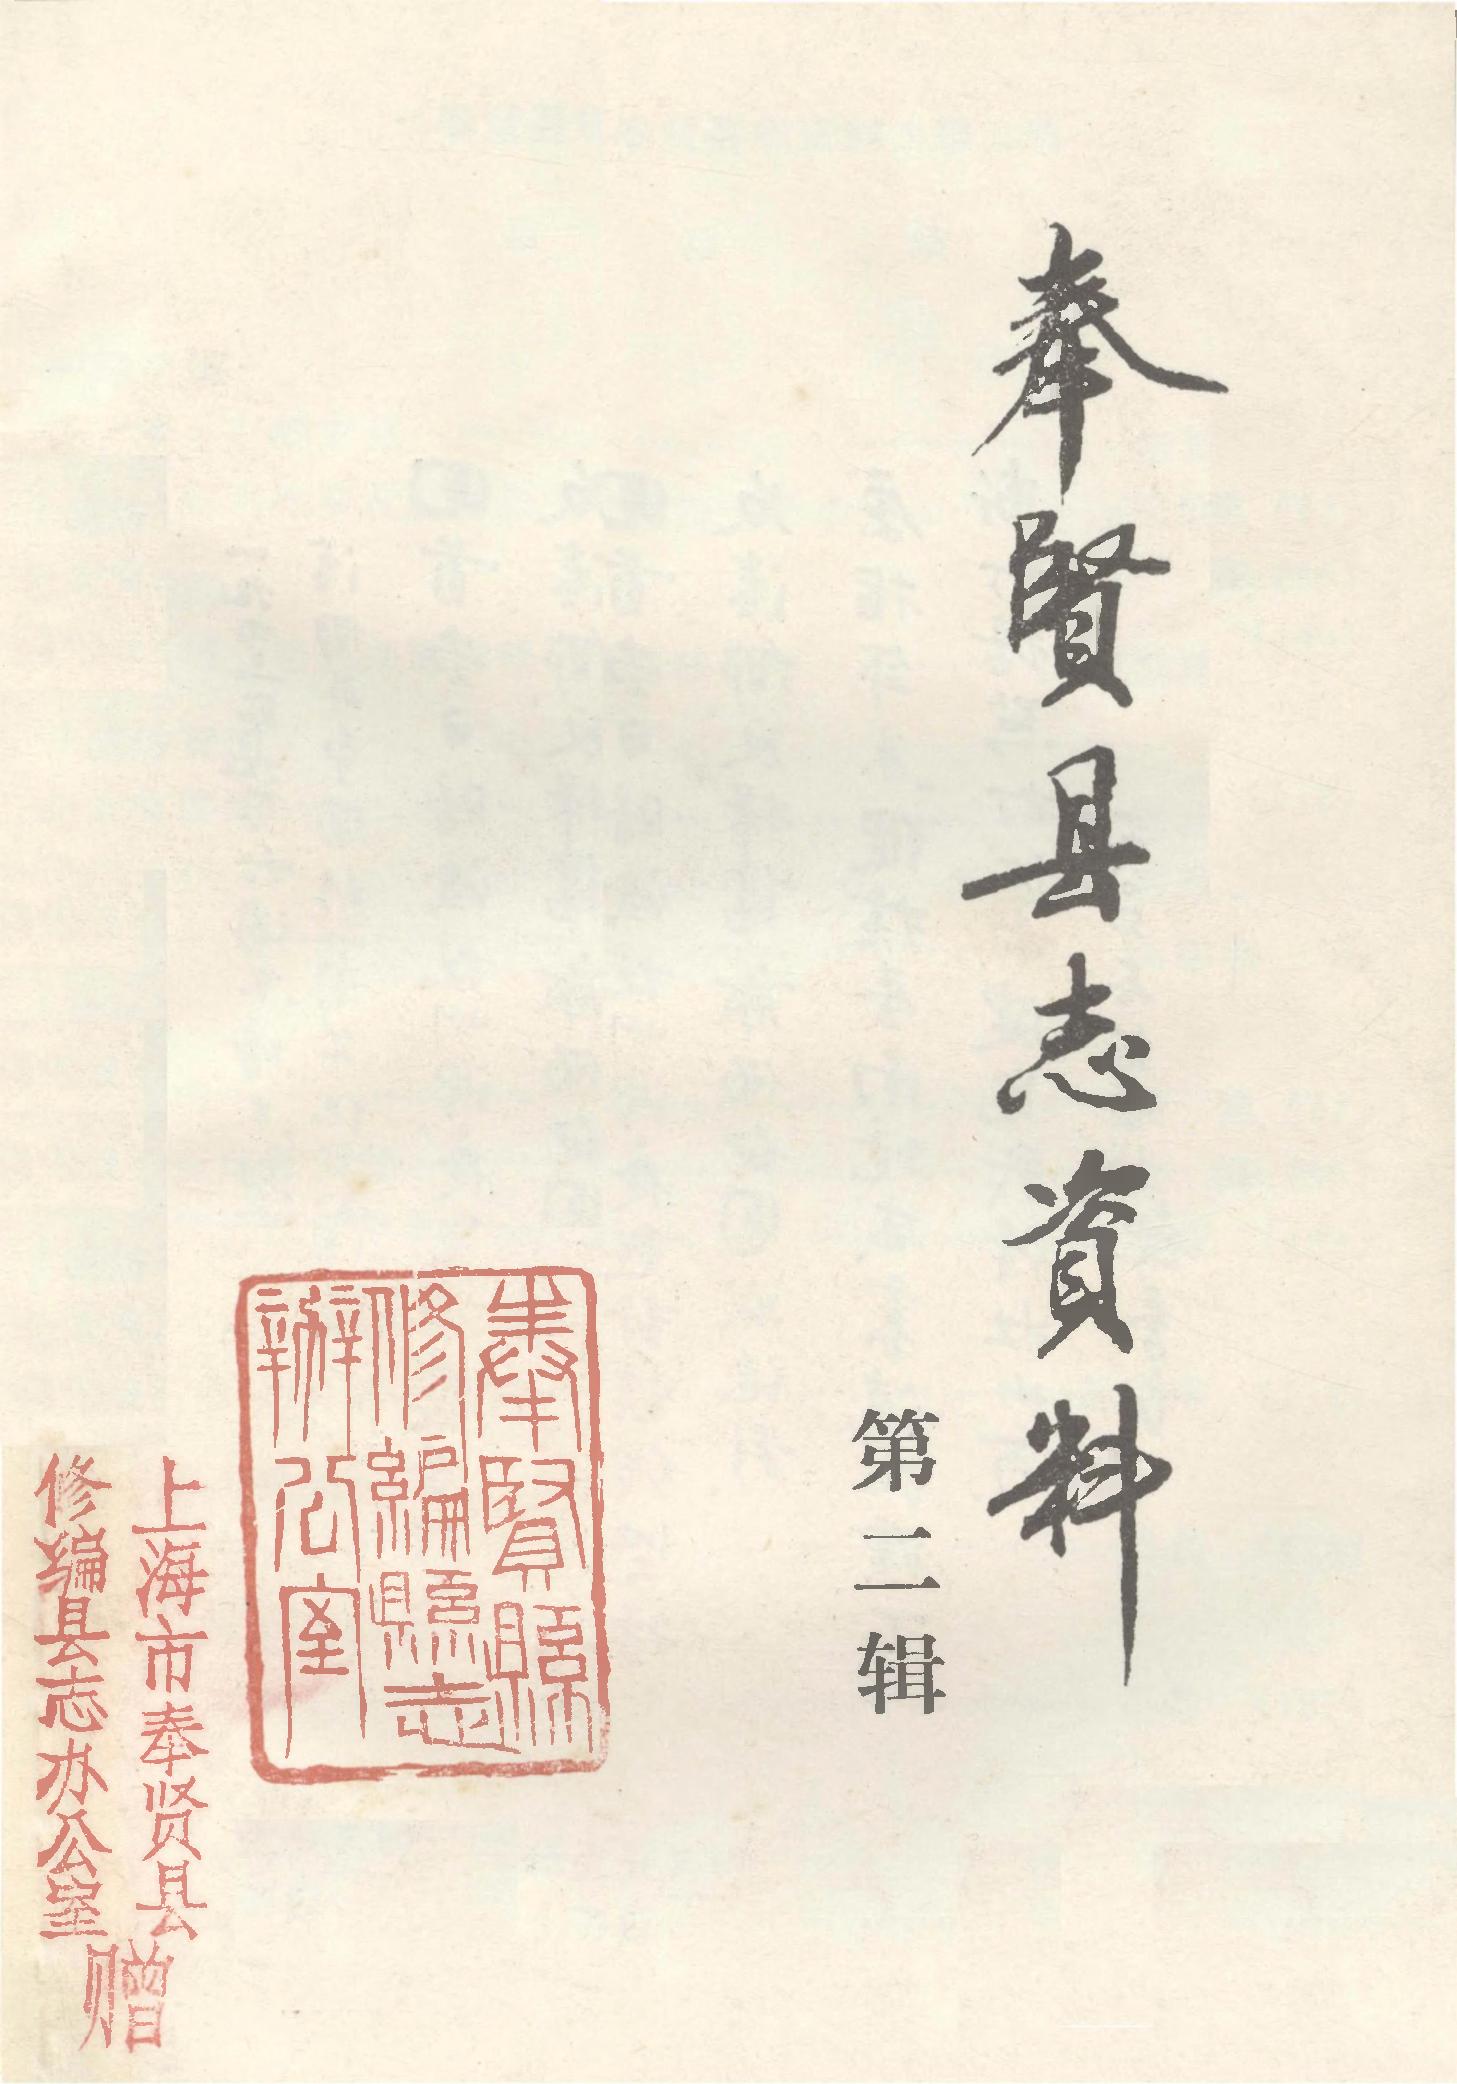 奉賢县志資料
第二辑
奉賢縣
修編縣志
辦公室
上海市奉贤县
修编县志办公室
赠